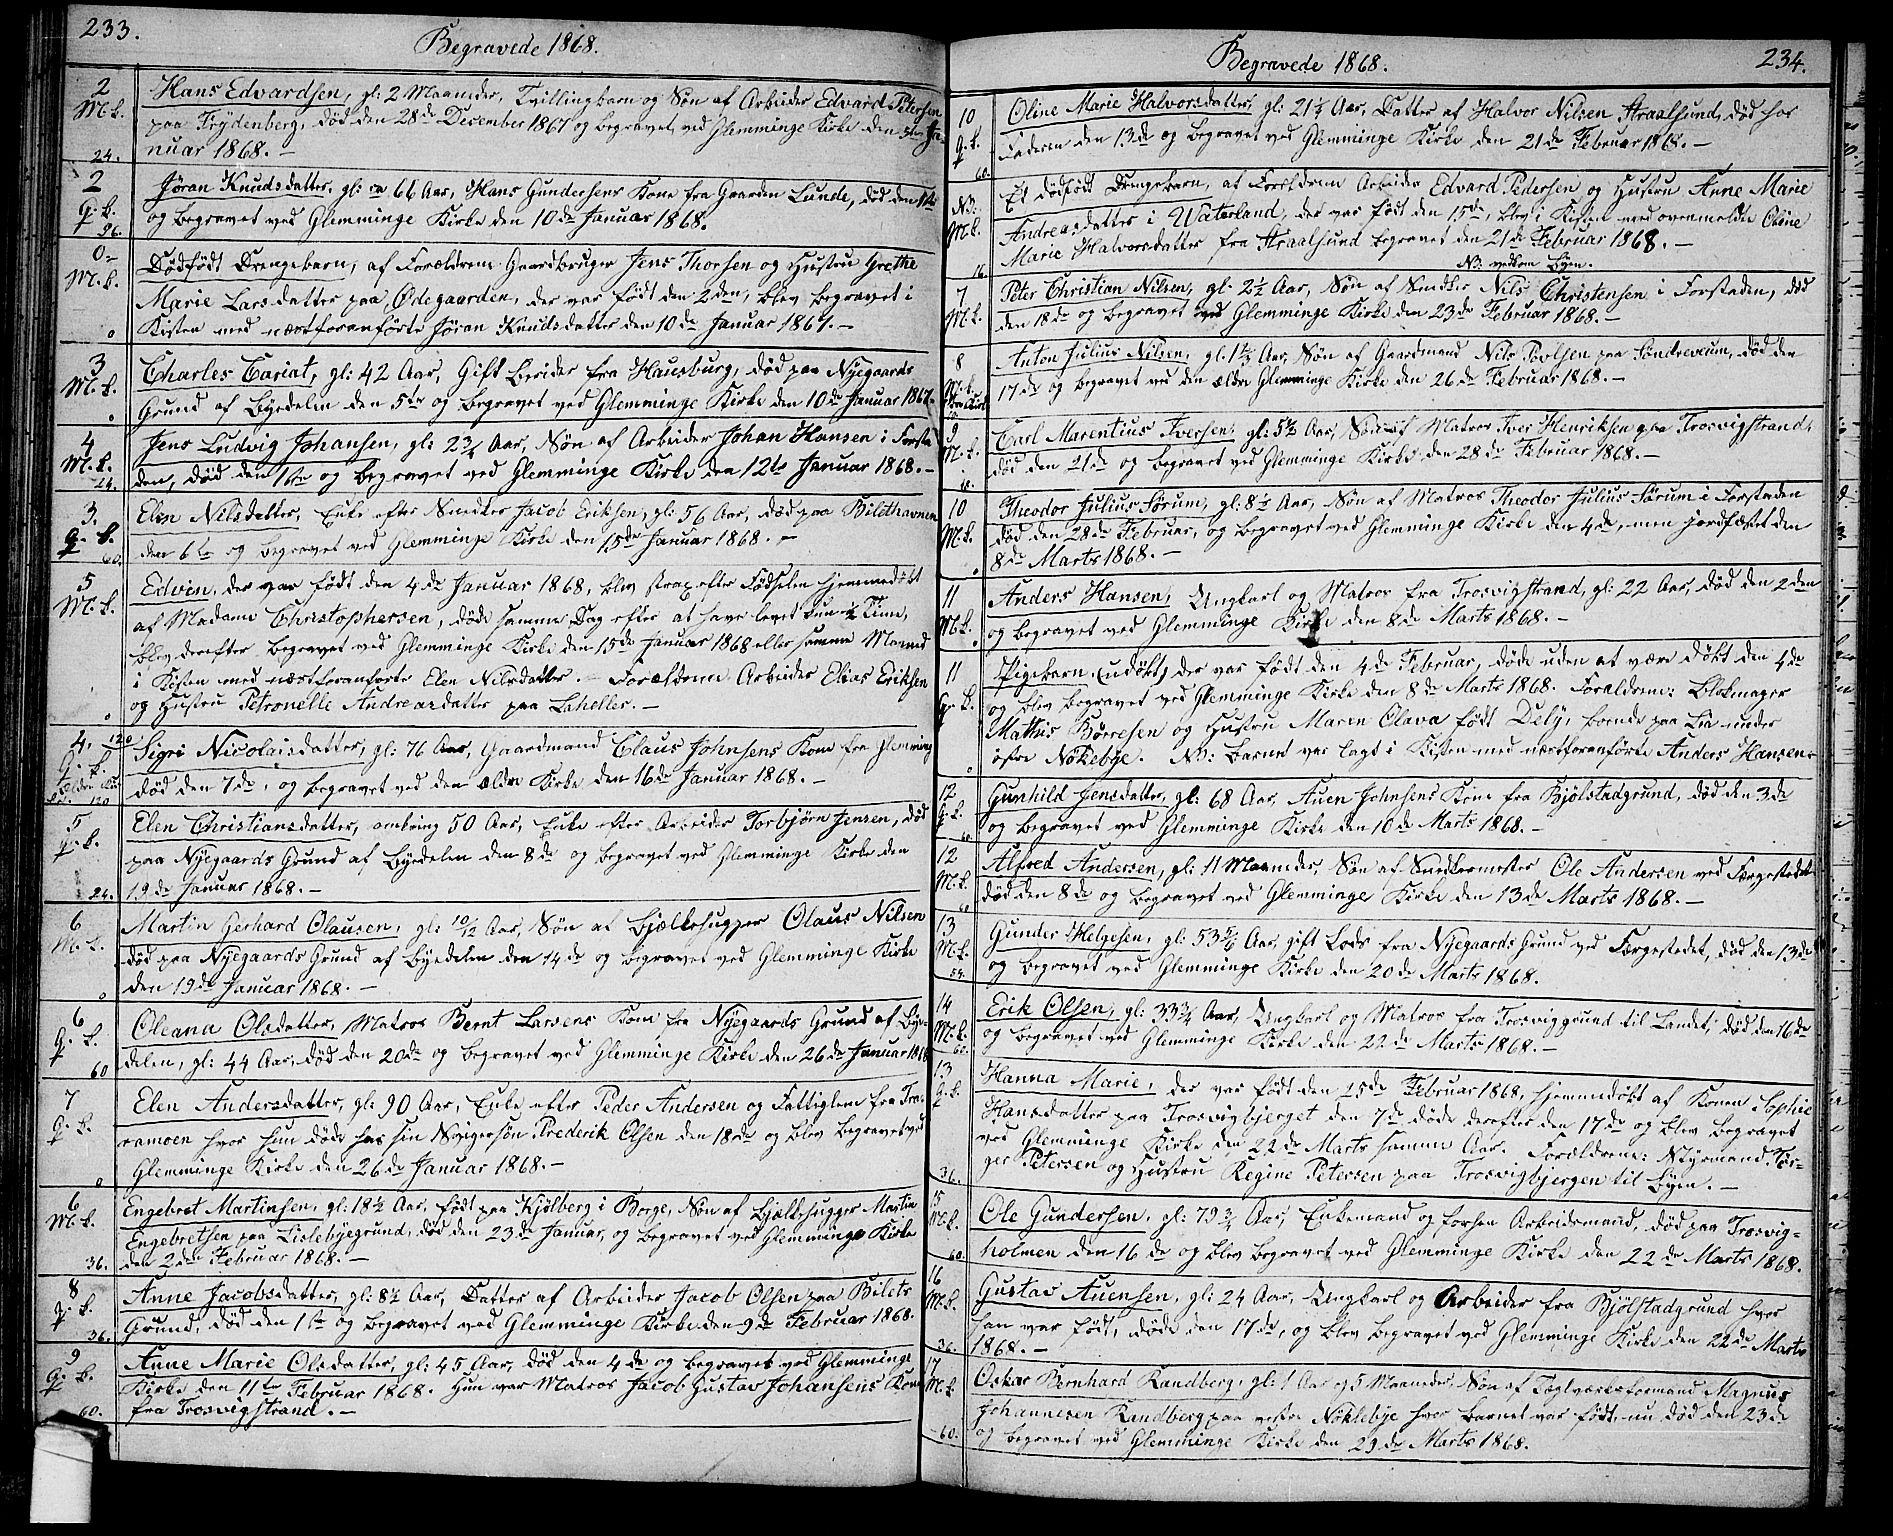 233.
Begravede 1868.
2
M. k.
24.
Hans Edvardsen, gl: 2 Maaneder, Tvillingbarn og Søn af Arbeider Edvard Petersen
paa Frydenberg, død den 28de December 1867 og begravet ved Glemminge Kirke den 5te Ja-
nuar 1868. —
2
Q. k.
96.
Jøran Knudsdatter, gl: ca 66 Aar, Hans Gundersens Kone fra Gaarden Lunde, død den
og begravet ved Glemminge Kirke den 10de Januar 1868.
0
M. k.
0
Dødfødt Drengebarn, af Forældrene Gaardbruger Jens Thorsen og Hustru Grethe
Marie Larsdatter paa Ødegaarden, der var født den 2den, blev begravet i
Kisten med næstforanførte Jøran Knudsdatter den 10de Januar 1867. —
3
M. k.
0
Charles Cariat, gl: 42 Aar, Gift Berider fra Hausburg, død paa Nyegaards
Grund af Byedelen den 5te og begravet ved Glemminge Kirke den 10de Januar 1867.
4
M. k.
24.
Jens Ludvig Johansen, gl: 2¾ Aar, Søn af Arbeider Johan Hansen i Forsta
den, død den 1ste og begravet ved Glemminge Kirke den 12te Januar 1868. —
3.
Q. k.
60.
Elen Nilsdatter, Enke efter Snedker Jacob Eriksen, gl: 56 Aar, død paa
den 6te og begravet ved Glemminge Kirke den 15de Januar 1868. —
5
M. k.
0
Edvin, der var født den 4de Januar 1868, blev strax efter Fødselen hjemmedøbt
af Madame Christophersen, døde samme Dag efter at have levet kun ½ Time,
blev derefter begravet ved Glemminge Kirke den 15de Januar 1868 eller samme Maaned
i Kisten med næstforanførte Elen Nilsdatter. — Forældrene Arbeider Elias Eriksen
og Hustru Petronelle Andreasdatter paa Laheller. —
4. 120
Q. k.
120
Sigri Nicolaisdatter, gl: 76 Aar, Gaardmand Claus Johnsens Kone fra Glemming
død den 7de, og begravet ved den ældre Kirke den 16de Januar 1868. —
5
Q. k.
24.
Elen Christiansdatter, omkring 50 Aar, Enke efter Arbeider Torbjørn Jensen, død
paa Nyegaards Grund af Byedelen den 8de og begravet ved Glemminge Kirke den
19de Januar 1868. —
6
M. k.
0
Martin Gerhard Olausen, gl: 10/12 Aar, Søn af Bjælkehugger Olaus Nilsen
død paa Nyegaards Grund af Byedelen den 14de og begravet ved Glemminge Kirke
den 19de Januar 1868. —
6
Q. k.
60
Oleana Olsdatter, Matros Bernt Larsens Kone fra Nyegaards Grund af Bye-
delen, gl: 44 Aar, død den 20de og begravet ved Glemminge Kirke den 26de Januar 1868
7
Q. k.
0
Elen Andersdatter, gl: 90 Aar, Enke efter Peder Andersen og Fattiglem fra Tra-
ramoen hvor hun døde hos sin Svigersøn Frederik Olsen den 18de og blev begravet ved
Glemminge Kirke den 26de Januar 1868. —
6
M. k.
36.
Engebret Martinsen, gl: 18½ Aar, født paa Kjølberg i Borge, Søn af Bjælkehugger Martin
Engebretsen paa Lislebyegrund, død den 23de Januar, og begravet ved Glemminge Kirke
den 2den Februar 1868. —
8
Q. k.
36.
Anne Jacobsdatter, gl: 8½ Aar, Datter af Arbeider Jacob Olsen paa Bilets
Grund, død den 1ste og begravet ved Glemminge Kirke den 9de Februar 1868.
9
Q. k.
60.
Anne Marie Olsdatter, gl: 45 Aar, død den 4de og begravet ved Glemminge
Kirke den 11te Februar 1868. Hun var Matros Jacob Gustav Johansens Kone
fra Trosvigstrand. —
Begravede 1868.
234.
10
Q. k.
60.
Oline Marie Halvorsdatter, gl: 21½ Aar, Datter af Halvor Nilsen Straalsund, død hos
Faderen den 13de og begravet ved Glemminge Kirke den 21de Februar 1868. —
NB:
M. k.
16.
Et dødfødt Drengebarn, af Forældrene Arbeider Edvard Pedersen og Hustru Anne Marie
Andreasdatter i Vaterland, der var født den 15de, blev i Kisten med ovenmeldte Oline
Marie Halvorsdatter fra Straalsund begravet den 21de Februar 1868. —
NB: vedkom Byen.
7
M. k.
Peter Christian Nilsen, gl: 2½ Aar, Søn af Snedker Nils Christensen i Forstaden, død
den 18de og begravet ved Glemminge Kirke den 23de Februar 1868. —
8
M. k.
Anton Julius Nilsen, gl: 1½ Aar, Søn af Gaardmand Nils Poulsen paa Søndreveum, død den
17de og begravet ved den ældre Glemminge Kirke den 26de Februar 1868. —
9
M. k.
Carl Marentius Iversen, gl: 5½ Aar, Søn af Matros Iver Henriksen paa Trosvigstrand,
død den 21de og begravet ved Glemminge Kirke den 28de Februar 1868. —
10
M. k.
0
Theodor Julius Sørum, gl: 8½ Aar, Søn af Matros Theodor Julius Sørum i Forstaden
død den 28de Februar, og begravet ved Glemminge Kirke den 4de, men jordfæstet den
8de Marts 1868. —
11
M. k.
0
Anders Hansen, Ungkarl og Matros fra Trosvigstrand, gl: 22 Aar, død den 2den
og begravet ved Glemminge Kirke den 8de Marts 1868. —
11
Q. k.
0
Pigebarn, (udøbt) der var født den 4de Februar, døde uden at være døbt den 4de
og blev begravet ved Glemminge Kirke den 8de Marts 1868. Forældrene: Blokmager
Mathis Børresen og Hustru Maren Olava født Dely, boende paa Lia under
østre Nøkleby. NB: Barnet var lagt i Kisten med næstforanførte Anders Hansen
12
Q. k.
60
Gunhild Jensdatter, gl: 68 Aar, Auen Johnsens Kone fra Bjølstadgrund, død den 3de
og begravet ved Glemminge Kirke den 10de Marts 1868. —
12
M. k.
60
Alfred Andersen, gl: 11 Maaneder, Søn af Snedkermester Ole Andersen ved Færgestedet
død den 8de og begravet ved Glemminge Kirke den 13de Marts 1868. —
13
M. k.
54.
Gunder Helgesen, gl: 53 5/6 Aar, gift Lods fra Nyegaards Grund ved Færgestedet, død den 13de
og begravet ved Glemminge Kirke den 20de Marts 1868.
14
M. k.
60.
Erik Olsen, gl: 33¾ Aar, Ungkarl og Matros fra Trosviggrund til Landet, død den 16de
og begravet ved Glemminge Kirke den 22de Marts 1868. —
13
Q. k.
36.
Hanna Marie, der var født den 25de Februar 1868, hjemmedøbt af Konen Sophie
Hansdatter paa Trosvigbjerget den 7de, døde derefter den 17de og blev begravet
ved Glemminge Kirke den 22de Marts samme Aar. Forældrene: Styrmand Tør-
ger Petersen og Hustru Regine Petersen paa Trosvigbjergen til Byen. —
15
M. k.
60.
Ole Gundersen, gl: 79¾ Aar, Enkemand og forhen Arbeidsmand, død paa Trosvig-
holmen den 16de og blev begravet ved Glemminge Kirke den 22de Marts 1868.
16
M. k.
36.
Gustav Auensen, gl: 24 Aar, Ungkarl og Arbeider fra Bjølstadgrund hvor
han var født, døde den 17de, og blev begravet ved Glemminge Kirke den 22de Marts
1868. —
17
M. k.
60.
Oskar Bernhard Randberg, gl: 1 Aar og 5 Maaneder, Søn af Teglværksformand Magnus
Johannesen Randberg paa vestre Nøklebye hvor Barnet var født, nu død den 23de
og begravet ved Glemminge Kirke den 29de Marts 1868.